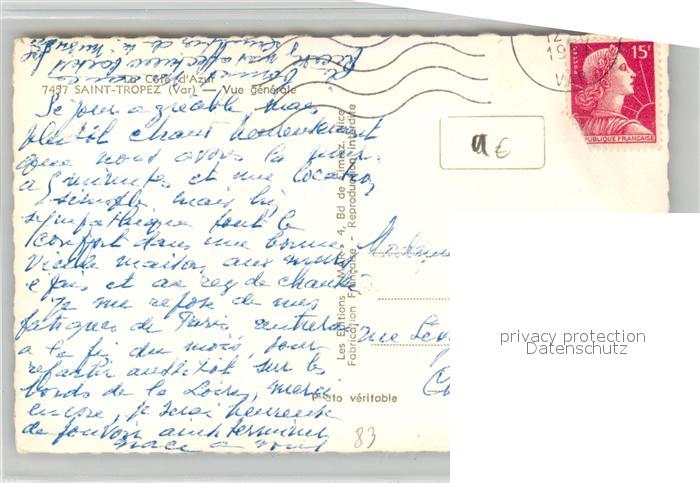 La Côte d'Azur
7457 SAINT-TROPEZ (Var) — Vue générale
Séjour agréable mais
plutôt chaud heureusement
que nous avons la mer
a 5 minutes et une location
simple mais bien
sympathique tout le
confort dans une bonne
vieille maison aux murs
épais et au rez de chaussée
Je me repose de mes
fatigues de Paris
a la fin du mois, pour
repartir aussitôt sur les
bords de la Loire, merci
encore, je serai heureuse
de pouvoir ainsi terminer
grace a vous
Les Editions "MAR" 4, Bd de Cimiez, Nice
Fabrication Française - Reproduction Interdite
Photo véritable
83
12
19
VAR
POSTES
15F
REPUBLIQUE FRANÇAISE
a €
Madame
rue
privacy protection
Datenschutz